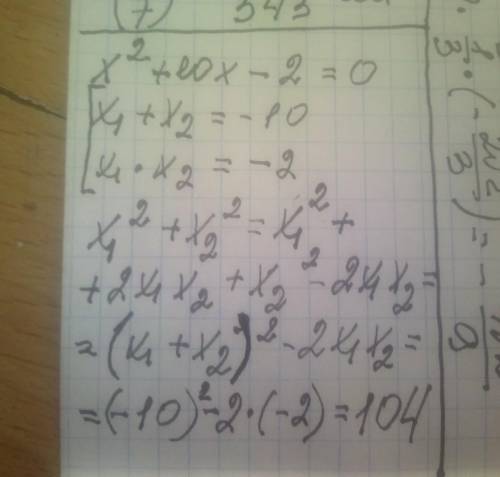 (7) 343
x² + 10x - 2 = 0
x₁ + x₂ = -10
x₁ · x₂ = -2
x₁² + x₂² = x₁² +
+ 2x₁x₂ + x₂² - 2x₁x₂ =
= (x₁ + x₂)² - 2x₁x₂ =
= (-10)² - 2 · (-2) = 104